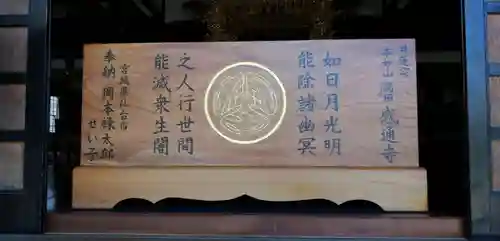 日蓮宗
本山 感通寺
如日月光明
能除諸幽冥
之人行世間
能滅衆生闇
宮城県仙台市
奉納 岡本禄太郎
せい子